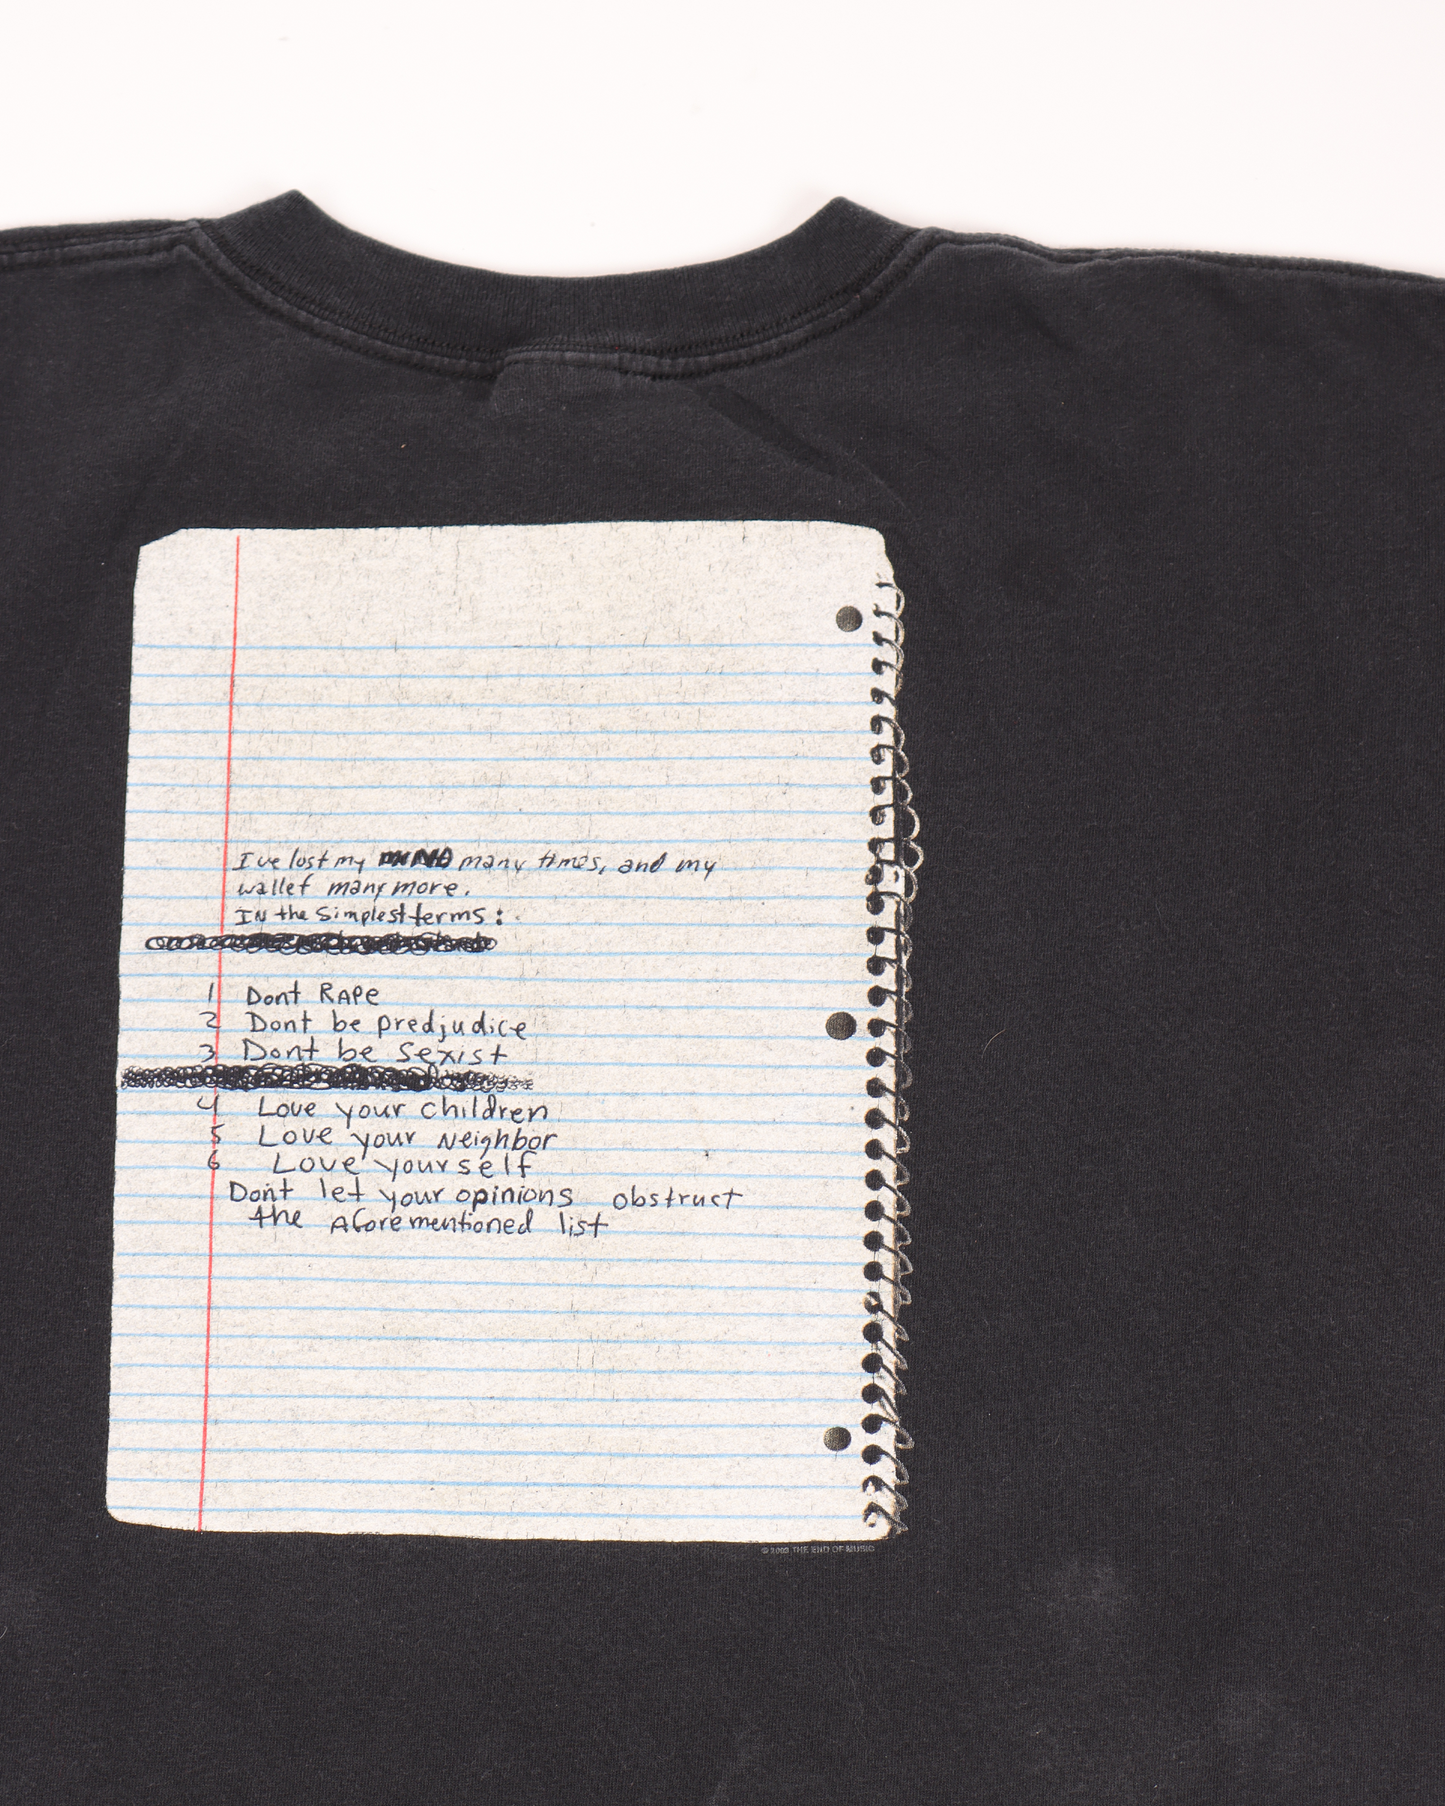 I've lost my MIND many times, and my
wallet many more.
IN the simplest terms:
1 Dont RAPE
2 Dont be predjudice
3 Dont be Sexist
4 Love your children
5 Love your Neighbor
6 Love yourself
Don't let your opinions obstruct
the Aforementioned list
THE END OF MUSIC